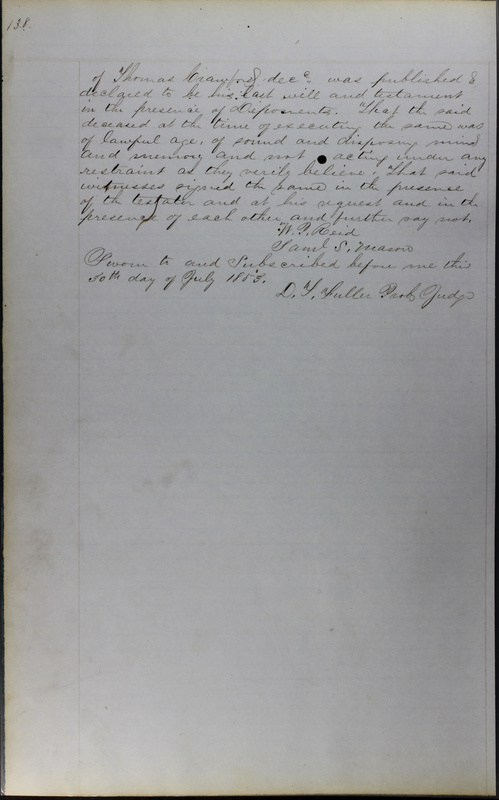 138.
of Thomas Crawford decd. was published &
declared to be his last will and testament
in the presence of Deponents. That the said
deceased at the time of executing the same was
of lawful age, of sound and disposing mind
and memory and not acting under any
restraint as they verily believe, That said
witnesses signed the same in the presence
of the testator and at his request and in the
presence of each other, and further say not.
W. P. Reid
Saml S. Mason
Sworn to and Subscribed before me this
30th day of July 1853.
D. T. Fuller Prob. Judge